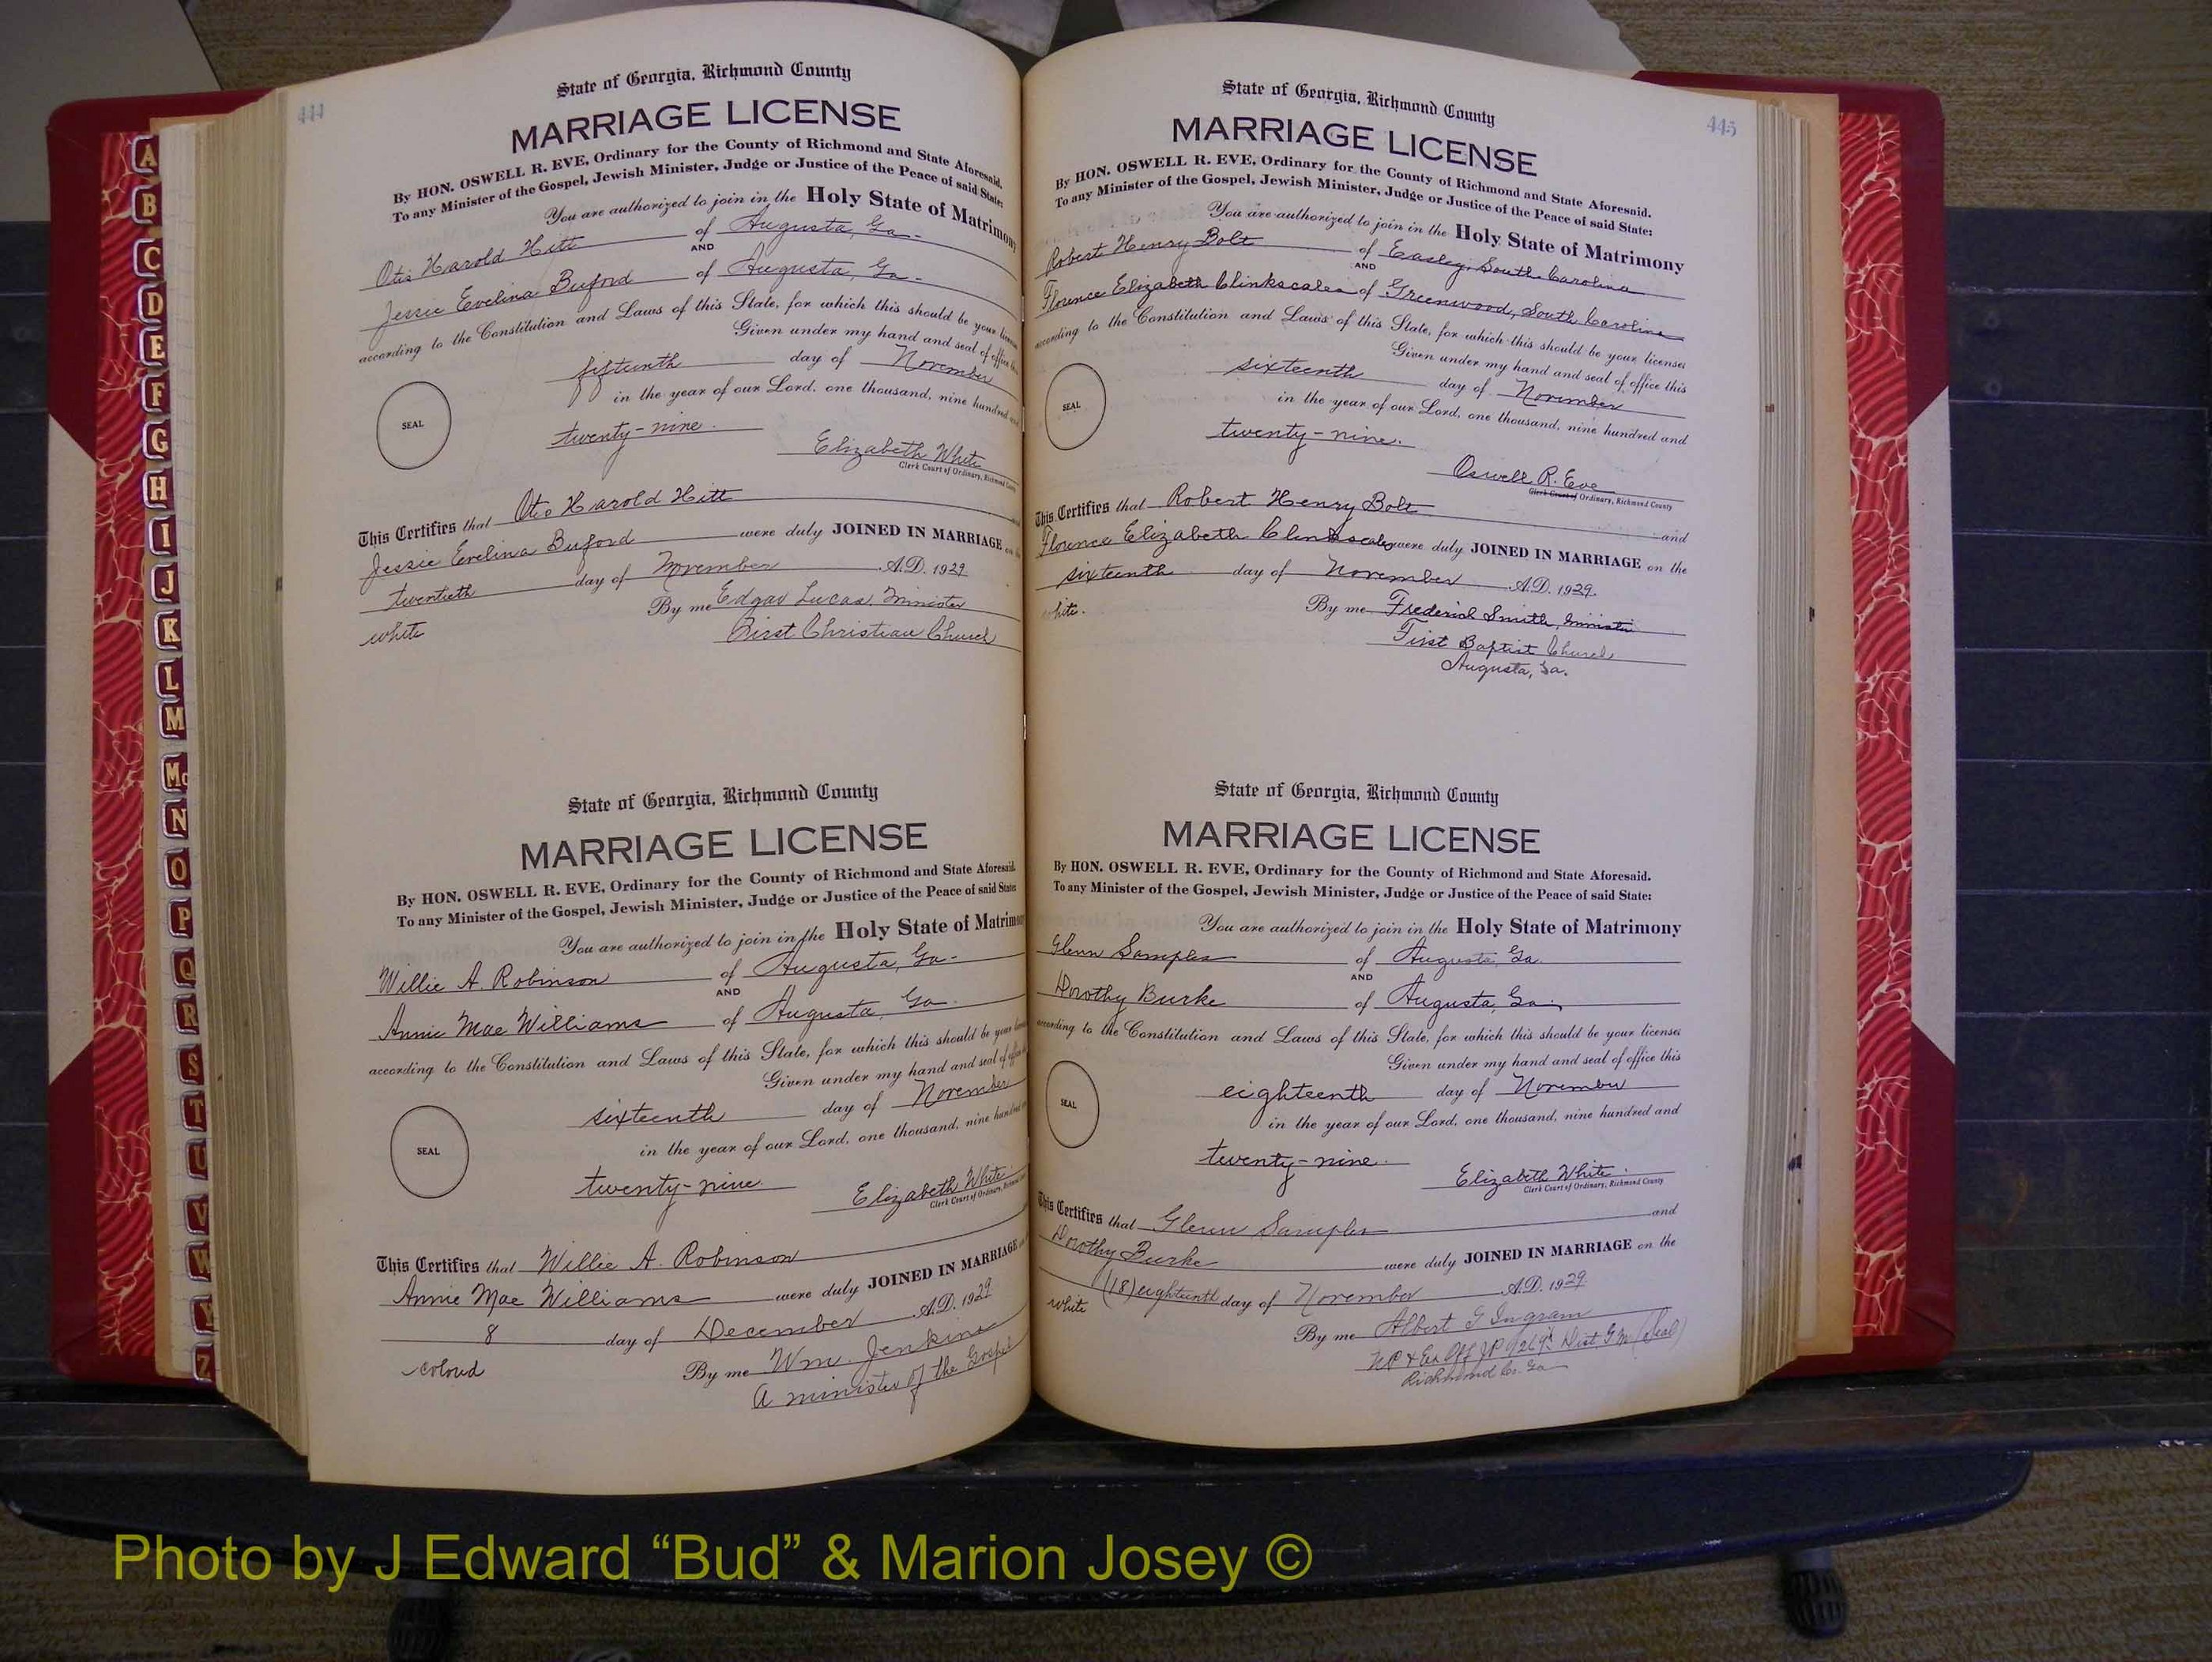 444
State of Georgia, Richmond County
MARRIAGE LICENSE
By HON. OSWELL R. EVE, Ordinary for the County of Richmond and State Aforesaid.
To any Minister of the Gospel, Jewish Minister, Judge or Justice of the Peace of said State:
You are authorized to join in the Holy State of Matrimony
Otis Harold Hitt of Augusta, Ga.
AND
Jessie Evelina Buford of Augusta, Ga.
according to the Constitution and Laws of this State, for which this should be your
Given under my hand and seal of office
fifteenth day of November
in the year of our Lord, one thousand, nine hundred
SEAL
twenty-nine.
Elizabeth White
Clerk Court of Ordinary, Richmond
This Certifies that Otis Harold Hitt
Jessie Evelina Buford were duly JOINED IN MARRIAGE
twentieth day of November A.D. 1929
By me Edgar Lucas, Minister
white First Christian Church
State of Georgia, Richmond County
MARRIAGE LICENSE
By HON. OSWELL R. EVE, Ordinary for the County of Richmond and State Aforesaid.
To any Minister of the Gospel, Jewish Minister, Judge or Justice of the Peace of said State:
You are authorized to join in the Holy State of Matrimony
Willie A. Robinson of Augusta, Ga.
AND
Annie Mae Williams of Augusta, Ga.
according to the Constitution and Laws of this State, for which this should be your
Given under my hand and seal of
sixteenth day of November
in the year of our Lord, one thousand, nine hundred
SEAL
twenty-nine.
Elizabeth White
Clerk Court of Ordinary, Richmond
This Certifies that Willie A. Robinson
Annie Mae Williams were duly JOINED IN MARRIAGE
8 day of December A.D. 1929
colored By me Wm. Jenkins
A minister of the Gospel
445
State of Georgia, Richmond County
MARRIAGE LICENSE
By HON. OSWELL R. EVE, Ordinary for the County of Richmond and State Aforesaid.
To any Minister of the Gospel, Jewish Minister, Judge or Justice of the Peace of said State:
You are authorized to join in the Holy State of Matrimony
Robert Henry Bolt of Easley, South Carolina
AND
Florence Elizabeth Clinkscales of Greenwood, South Carolina
according to the Constitution and Laws of this State, for which this should be your licenses
Given under my hand and seal of office this
sixteenth day of November
in the year of our Lord, one thousand, nine hundred and
SEAL
twenty-nine.
Oswell R. Eve
Clerk Court of Ordinary, Richmond County
This Certifies that Robert Henry Bolt and
Florence Elizabeth Clinkscales were duly JOINED IN MARRIAGE on the
sixteenth day of November A.D. 1929.
white. By me Frederick Smith, Minister
First Baptist Church
Augusta, Ga.
State of Georgia, Richmond County
MARRIAGE LICENSE
By HON. OSWELL R. EVE, Ordinary for the County of Richmond and State Aforesaid.
To any Minister of the Gospel, Jewish Minister, Judge or Justice of the Peace of said State:
You are authorized to join in the Holy State of Matrimony
Glenn Samples of Augusta, Ga.
AND
Dorothy Burke of Augusta, Ga.
according to the Constitution and Laws of this State, for which this should be your licenses
Given under my hand and seal of office this
eighteenth day of November
in the year of our Lord, one thousand, nine hundred and
SEAL
twenty-nine.
Elizabeth White.
Clerk Court of Ordinary, Richmond County
This Certifies that Glenn Samples and
Dorothy Burke were duly JOINED IN MARRIAGE on the
(18) eighteenth day of November A.D. 1929
white By me Albert G Ingram
NP & Ex Off JP Dist G M (Seal)
Richmond Co. Ga
A
B
C
D
E
F
G
H
I
J
K
L
M
Mc
N
O
P
Q
R
S
T
U
V
W
Y
Z
Photo by J Edward “Bud” & Marion Josey ©